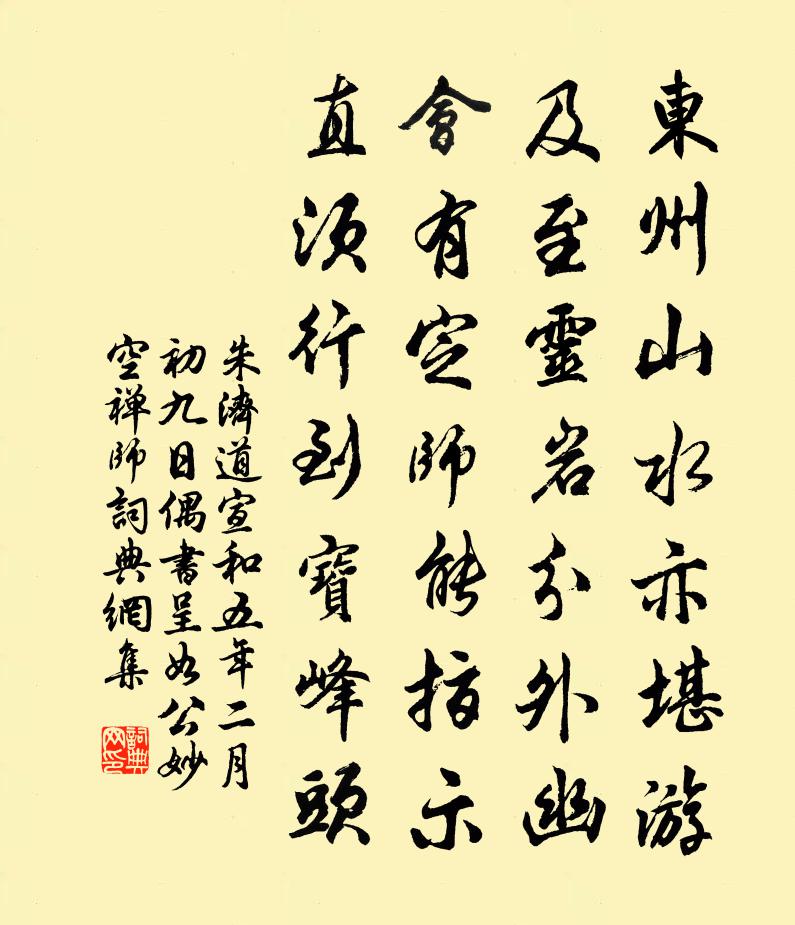 東州山水亦堪游
及至靈岩分外幽
會有定師能指示
直須行到寶峰頭
朱濟道宣和五年二月
初九日偶書呈如公妙
空禅師詞典網集
詞典
网印